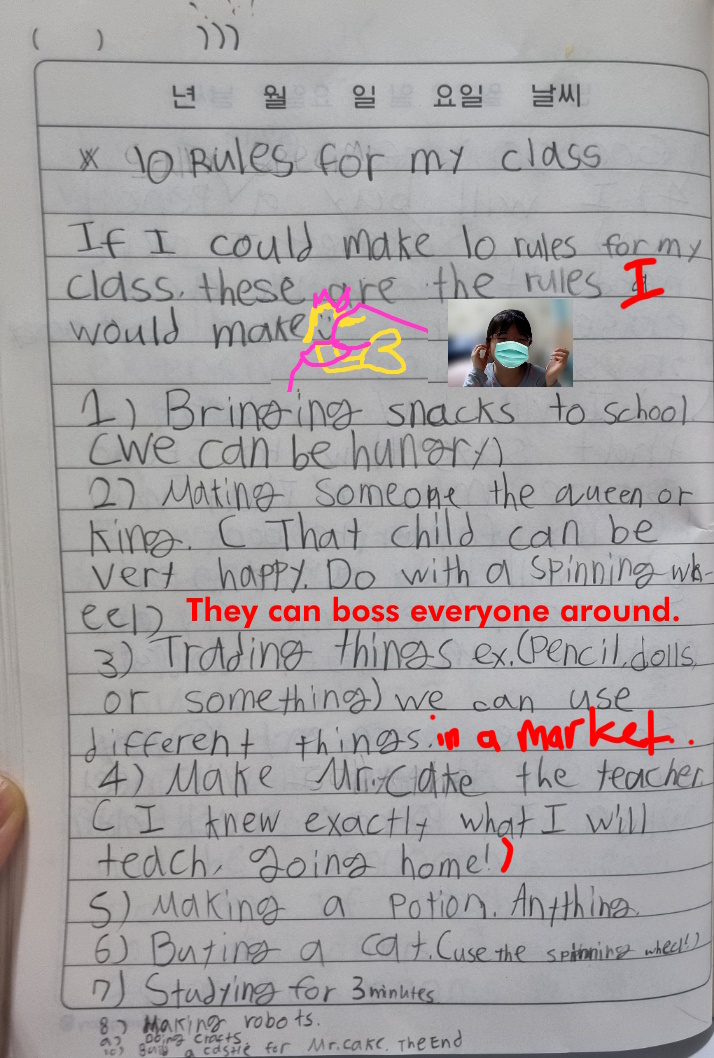 ( ) )))
년 월 일 요일 날씨
* 10 Rules for my class
If I could make 10 rules for my
class, these are the rules I
would make
1) Bringing snacks to school
(We can be hungry)
2) Making someone the queen or
king. ( That child can be
very happy. Do with a spinning wh-
eel) They can boss everyone around.
3) Trading things ex.(Pencil, dolls,
or something) we can use
different things. in a market.
4) Make Mr.Cake the teacher.
( I knew exactly what I will
teach, going home!)
5) Making a potion. Anything.
6) Buying a cat. (use the spinning wheel!)
7) Studying for 3 minutes
8) Making robots.
9) Doing crafts.
10) a castle for Mr.Cake. The End